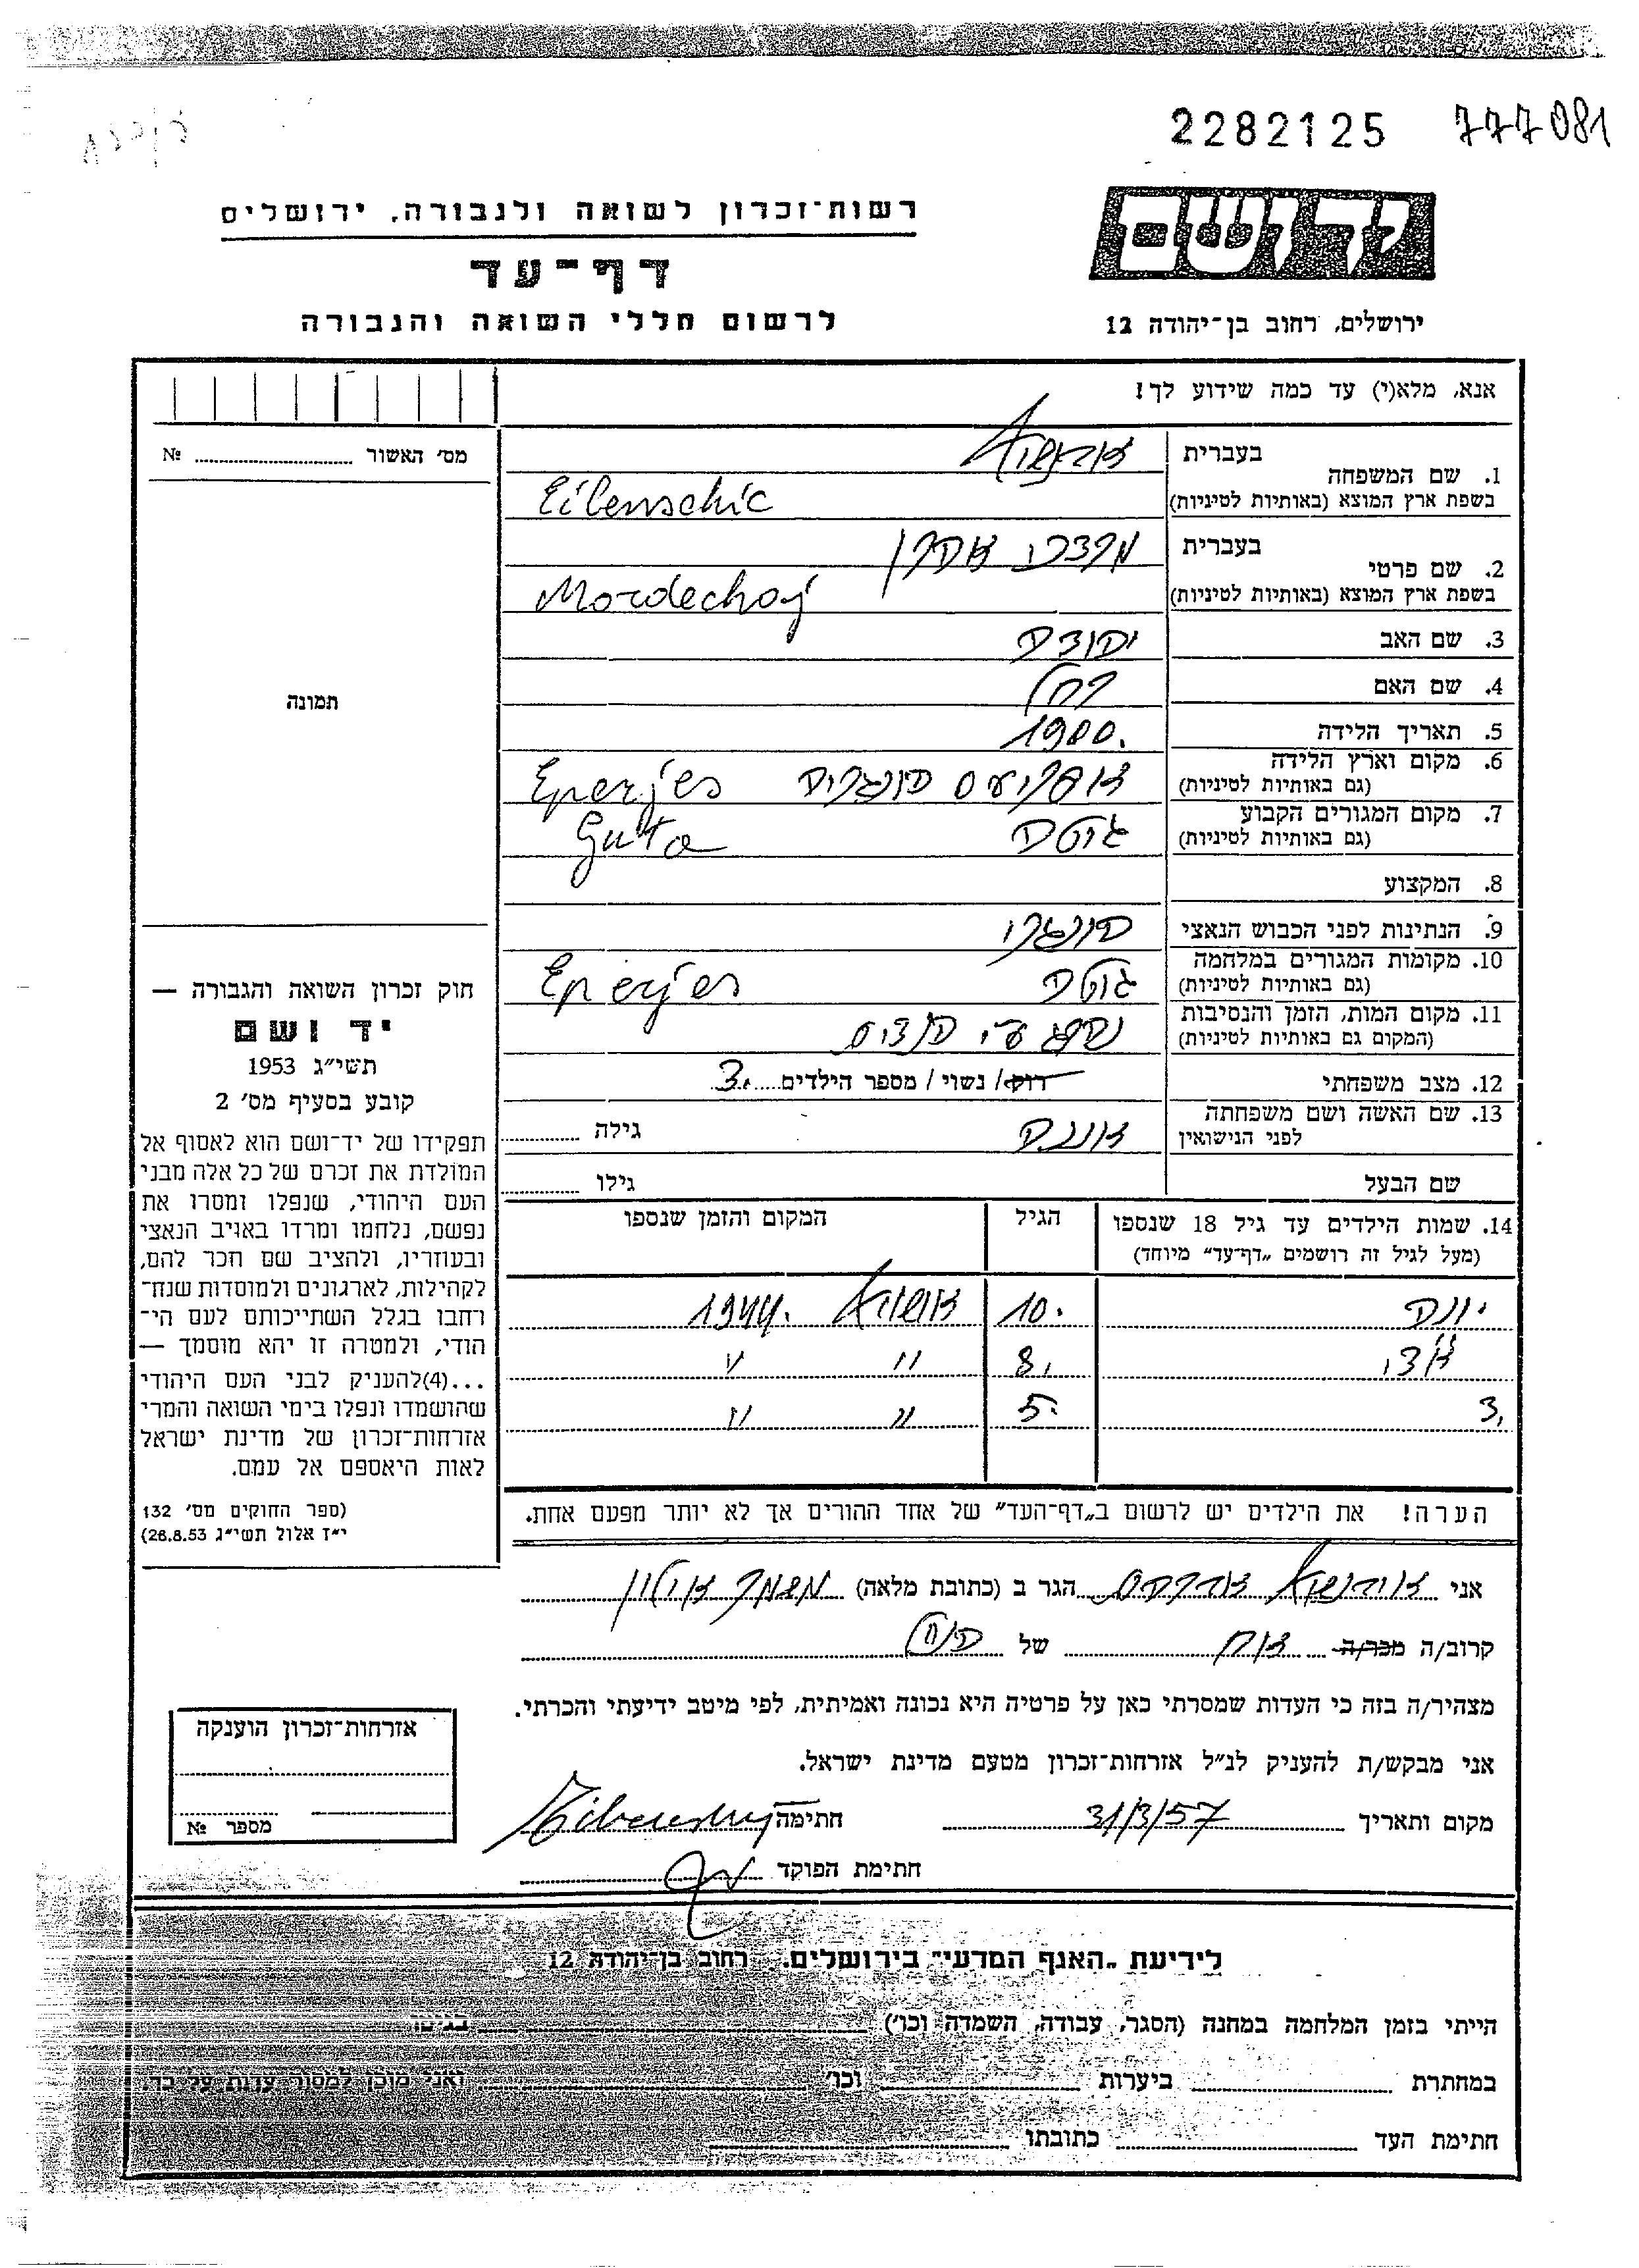 2282125 777081
יד ושם
רשות־זכרון לשואה ולגבורה, ירושלים
דף־עד
ירושלים, רחוב בן־יהודה 12
לרשום חללי השואה והגבורה
אנא, מלא(י) עד כמה שידוע לך!
מס׳ האשור № ..........
תמונה
1. שם המשפחה
בעברית
בשפת ארץ המוצא (באותיות לטיניות) Eibenschic
2. שם פרטי
בעברית מרדכי אהרן
בשפת ארץ המוצא (באותיות לטיניות) Mordechaj
3. שם האב יהודה
4. שם האם רחל
5. תאריך הלידה 1900.
6. מקום וארץ הלידה
(גם באותיות לטיניות) הונגריה Eperjes
7. מקום המגורים הקבוע
(גם באותיות לטיניות) גוטה Guta
8. המקצוע
9. הנתינות לפני הכבוש הנאצי הונגרי
10. מקומות המגורים במלחמה
(גם באותיות לטיניות) גוטה Eperjes
11. מקום המות, הזמן והנסיבות
(המקום גם באותיות לטיניות) נהרג ע״י
12. מצב משפחתי רוק/ נשוי / מספר הילדים..... 3.
13. שם האשה ושם משפחתה
לפני הנישואין גילה ..........
שם הבעל גילו ..........
14. שמות הילדים עד גיל 18 שנספו הגיל המקום והזמן שנספו
(מעל לגיל זה רושמים „דף־עד״ מיוחד)
יונה 10. 1944.
8. ״ ״
3. 5. ״ ״
הערה! את הילדים יש לרשום ב„דף־העד״ של אחד ההורים אך לא יותר מפעם אחת.
חוק זכרון השואה והגבורה —
יד ושם
תשי״ג 1953
קובע בסעיף מס׳ 2
תפקידו של יד־ושם הוא לאסוף אל
המולדת את זכרם של כל אלה מבני
העם היהודי, שנפלו ומסרו את
נפשם, נלחמו ומרדו באויב הנאצי
ובעוזריו, ולהציב שם וזכר להם,
לקהילות, לארגונים ולמוסדות שנח־
רחבו בגלל השתייכותם לעם הי־
הודי, ולמטרה זו יהא מוסמך —
...(4)להעניק לבני העם היהודי
שהושמדו ונפלו בימי השואה והמרי
אזרחות־זכרון של מדינת ישראל
לאות היאספם אל עמם.
(ספר החוקים מס׳ 132
י״ז אלול תשי״ג 26.8.53)
אני הגר ב (כתובת מלאה)
קרוב/ה מכר/ה אח של
מצהיר/ה בזה כי העדות שמסרתי כאן על פרטיה היא נכונה ואמיתית, לפי מיטב ידיעתי והכרתי.
אני מבקש/ת להעניק לנ״ל אזרחות־זכרון מטעם מדינת ישראל.
מקום ותאריך 31/3/57 חתימה
חתימת הפוקד
אזרחות־זכרון הוענקה
מספר №
לידיעת „האגף המדעי״ בירושלים. רחוב בן־יהודה 12
הייתי בזמן המלחמה במחנה (הסגר, עבודה, השמדה וכו׳) בגיטו
במחתרת ביערות וכו׳ ואני מוכן למסור עדות על כך.
חתימת העד כתובתו